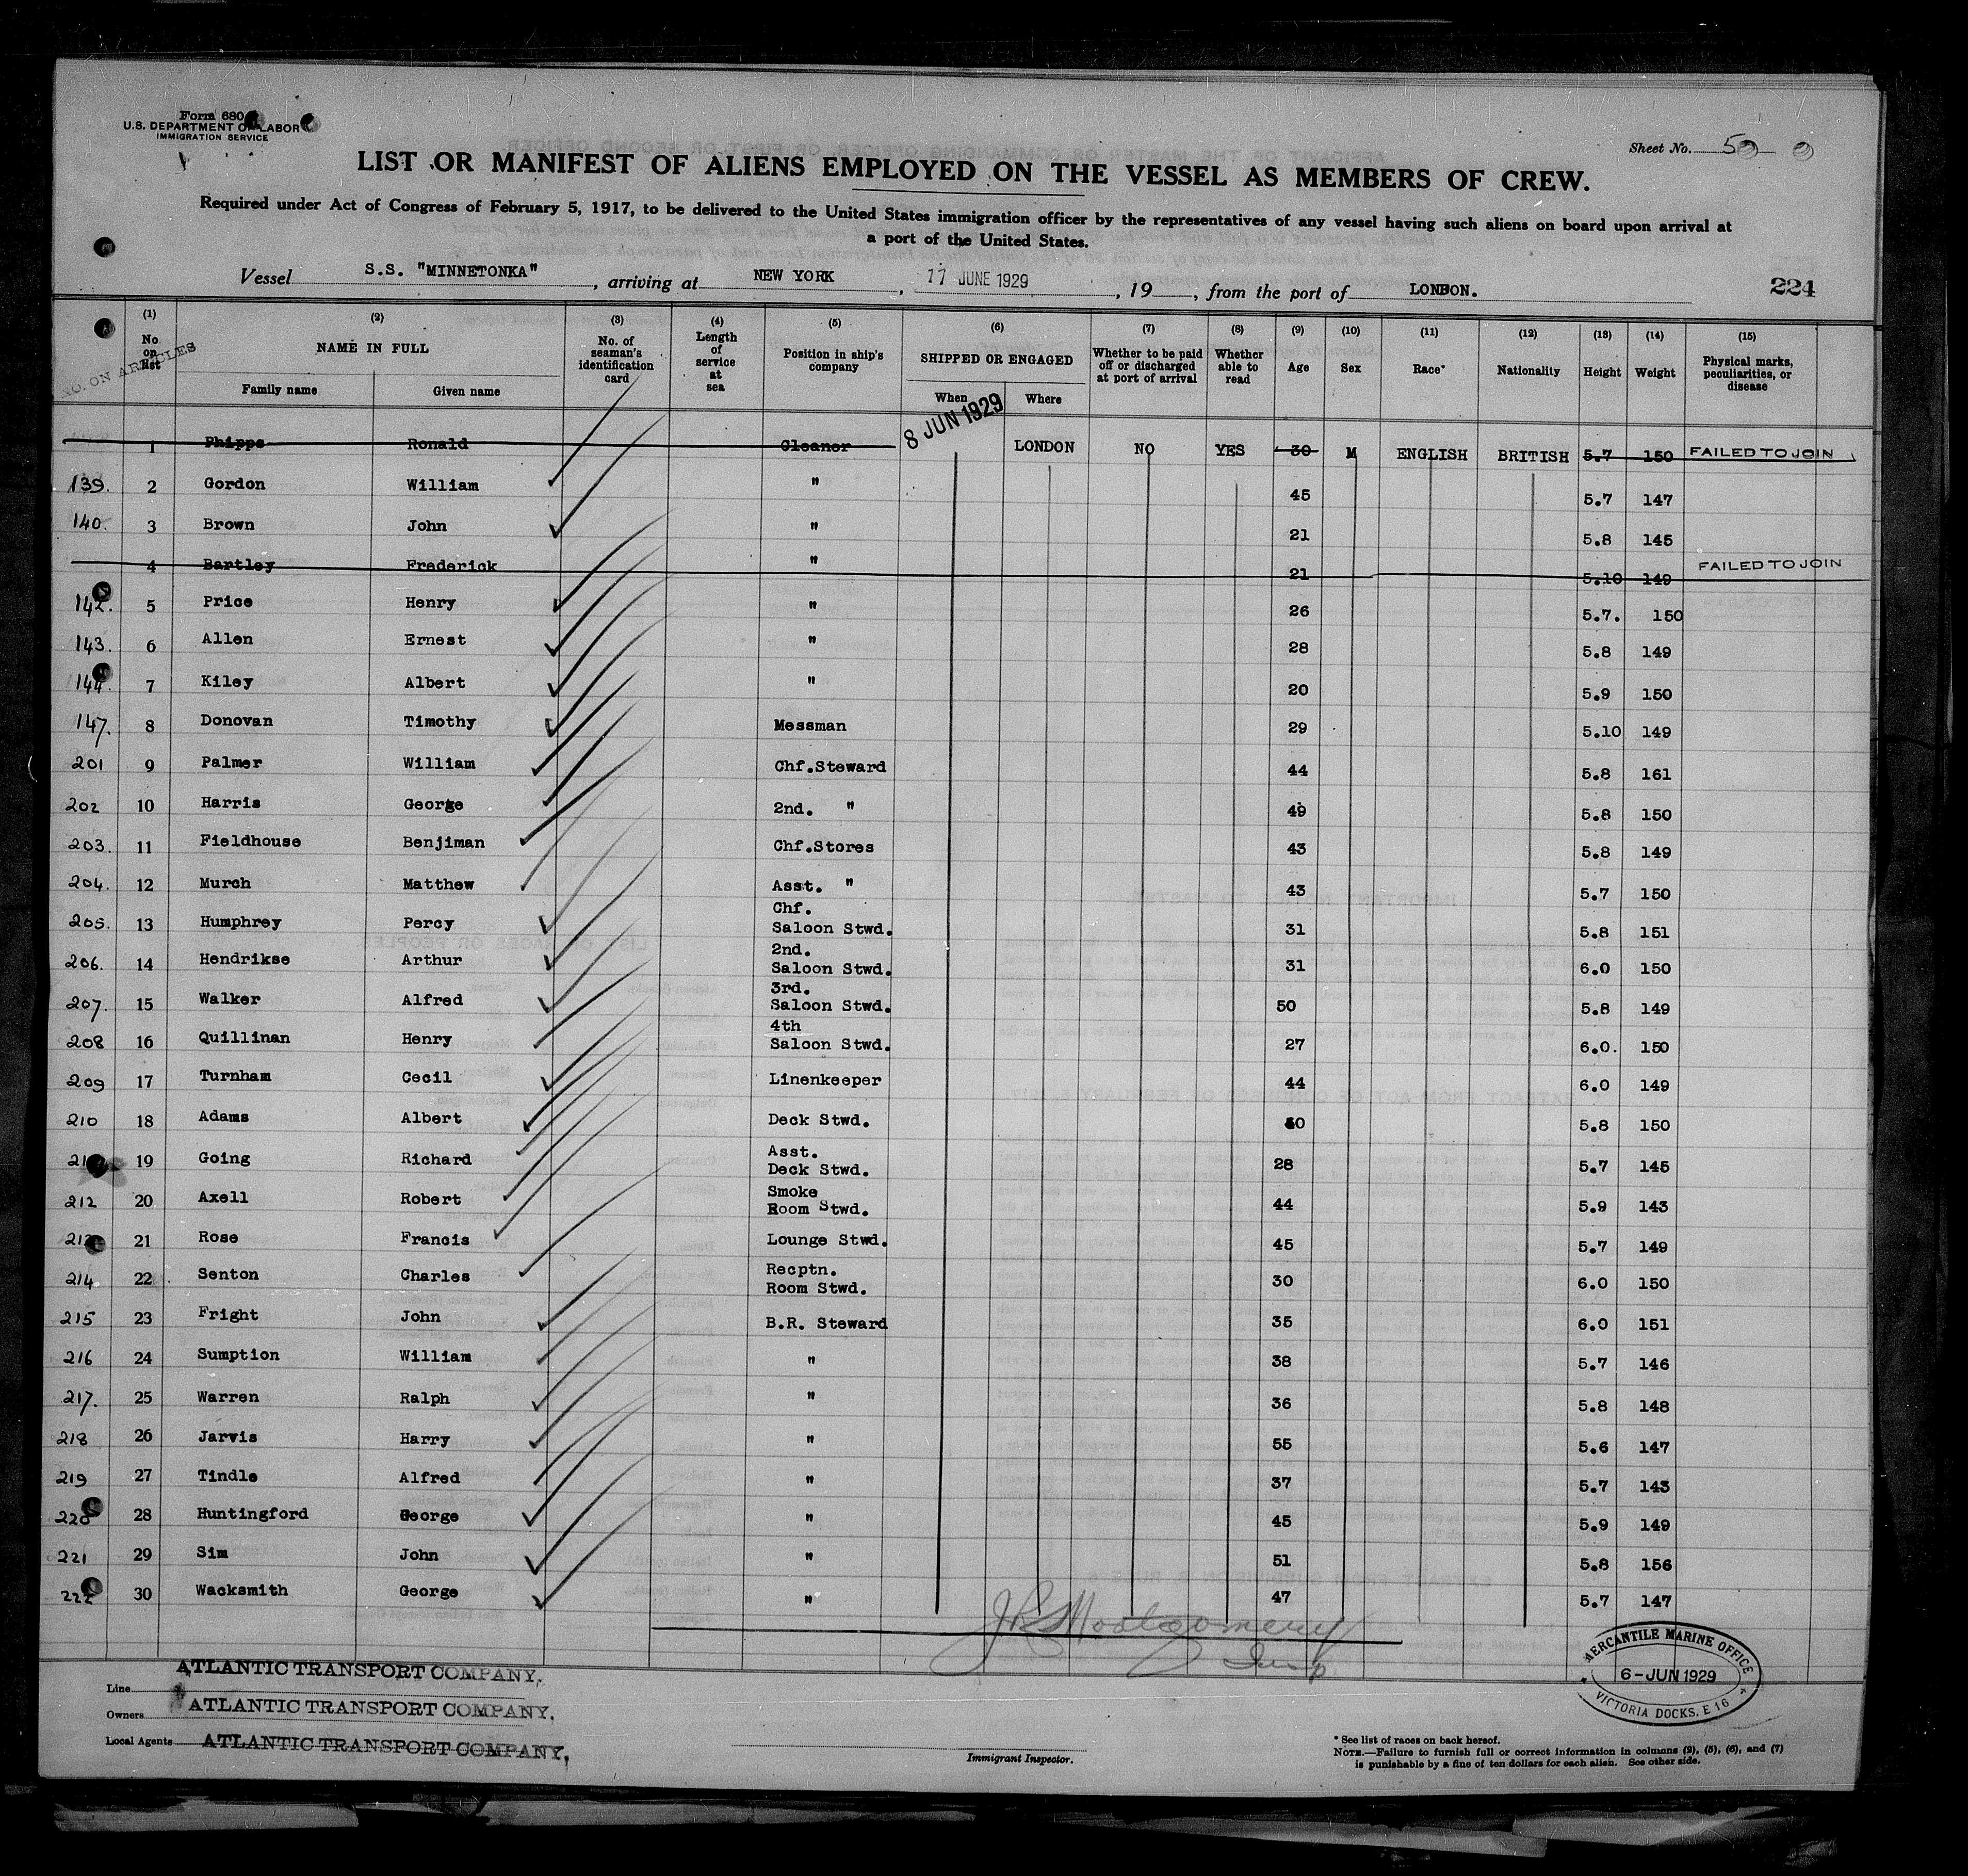 Form 680
U.S. DEPARTMENT OF LABOR
IMMIGRATION SERVICE
Sheet No.
LIST OR MANIFEST OF ALIENS EMPLOYED ON THE VESSEL AS MEMBERS OF CREW.
Required under Act of Congress of February 5, 1917, to be delivered to the United States immigration officer by the representatives of any vessel having such aliens on board upon arrival at
a port of the United States.
Vessel S.S. "MINNETONKA", arriving at NEW YORK, 17 JUNE 1929, 19, from the port of LONDON.
224
NO. ON ARTICLES
(1) (2) (3) (4) (5) (6) (7) (8) (9) (10) (11) (12) (13) (14) (15)
No on list NAME IN FULL Family name Given name No. of seaman's identification card Length of service at sea Position in ship's company SHIPPED OR ENGAGED When Where Whether to be paid off or discharged at port of arrival Whether able to read Age Sex Race* Nationality Height Weight Physical marks, peculiarities, or disease
1 Phipps Ronald Cleaner 8 JUN 1929 LONDON NO YES 30 M ENGLISH BRITISH 5.7 150 FAILED TO JOIN
139. 2 Gordon William " 45 5.7 147
140. 3 Brown John " 21 5.8 145
4 Bartley Frederick " 21 5.10 149 FAILED TO JOIN
142. 5 Price Henry " 26 5.7. 150
143. 6 Allen Ernest " 28 5.8 149
144. 7 Kiley Albert " 20 5.9 150
147. 8 Donovan Timothy Messman 29 5.10 149
201 9 Palmer William Chf.Steward 44 5.8 161
202 10 Harris George 2nd. " 49 5.8 150
203. 11 Fieldhouse Benjiman Chf.Stores 43 5.8 149
204. 12 Murch Matthew Asst. " 43 5.7 150
205. 13 Humphrey Percy Chf. Saloon Stwd. 31 5.8 151
206. 14 Hendrikse Arthur 2nd. Saloon Stwd. 31 6.0 150
207. 15 Walker Alfred 3rd. Saloon Stwd. 50 5.8 149
208 16 Quillinan Henry 4th Saloon Stwd. 27 6.0. 150
209 17 Turnham Cecil Linenkeeper 44 6.0 149
210 18 Adams Albert Deck Stwd. 5.8 150
19 Going Richard Asst. Deck Stwd. 28 5.7 145
212 20 Axell Robert Smoke Room Stwd. 44 5.9 143
213 21 Rose Francis Lounge Stwd. 45 5.7 149
214 22 Senton Charles Recptn. Room Stwd. 30 6.0 150
215 23 Fright John B.R. Steward 35 6.0 151
216 24 Sumption William " 38 5.7 146
217. 25 Warren Ralph " 36 5.8 148
218 26 Jarvis Harry " 55 5.6 147
219 27 Tindle Alfred " 37 5.7 143
220 28 Huntingford George " 45 5.9 149
221 29 Sim John " 51 5.8 156
222 30 Wacksmith George " 47 5.7 147
Montgomery
MERCANTILE MARINE OFFICE
6-JUN 1929
VICTORIA DOCKS, E 16
Line ATLANTIC TRANSPORT COMPANY.
Owners ATLANTIC TRANSPORT COMPANY.
Local Agents ATLANTIC TRANSPORT COMPANY.
Immigrant Inspector.
* See list of races on back hereof.
NOTE.—Failure to furnish full or correct information in columns (2), (5), (6), and (7)
is punishable by a fine of ten dollars for each alien. See other side.